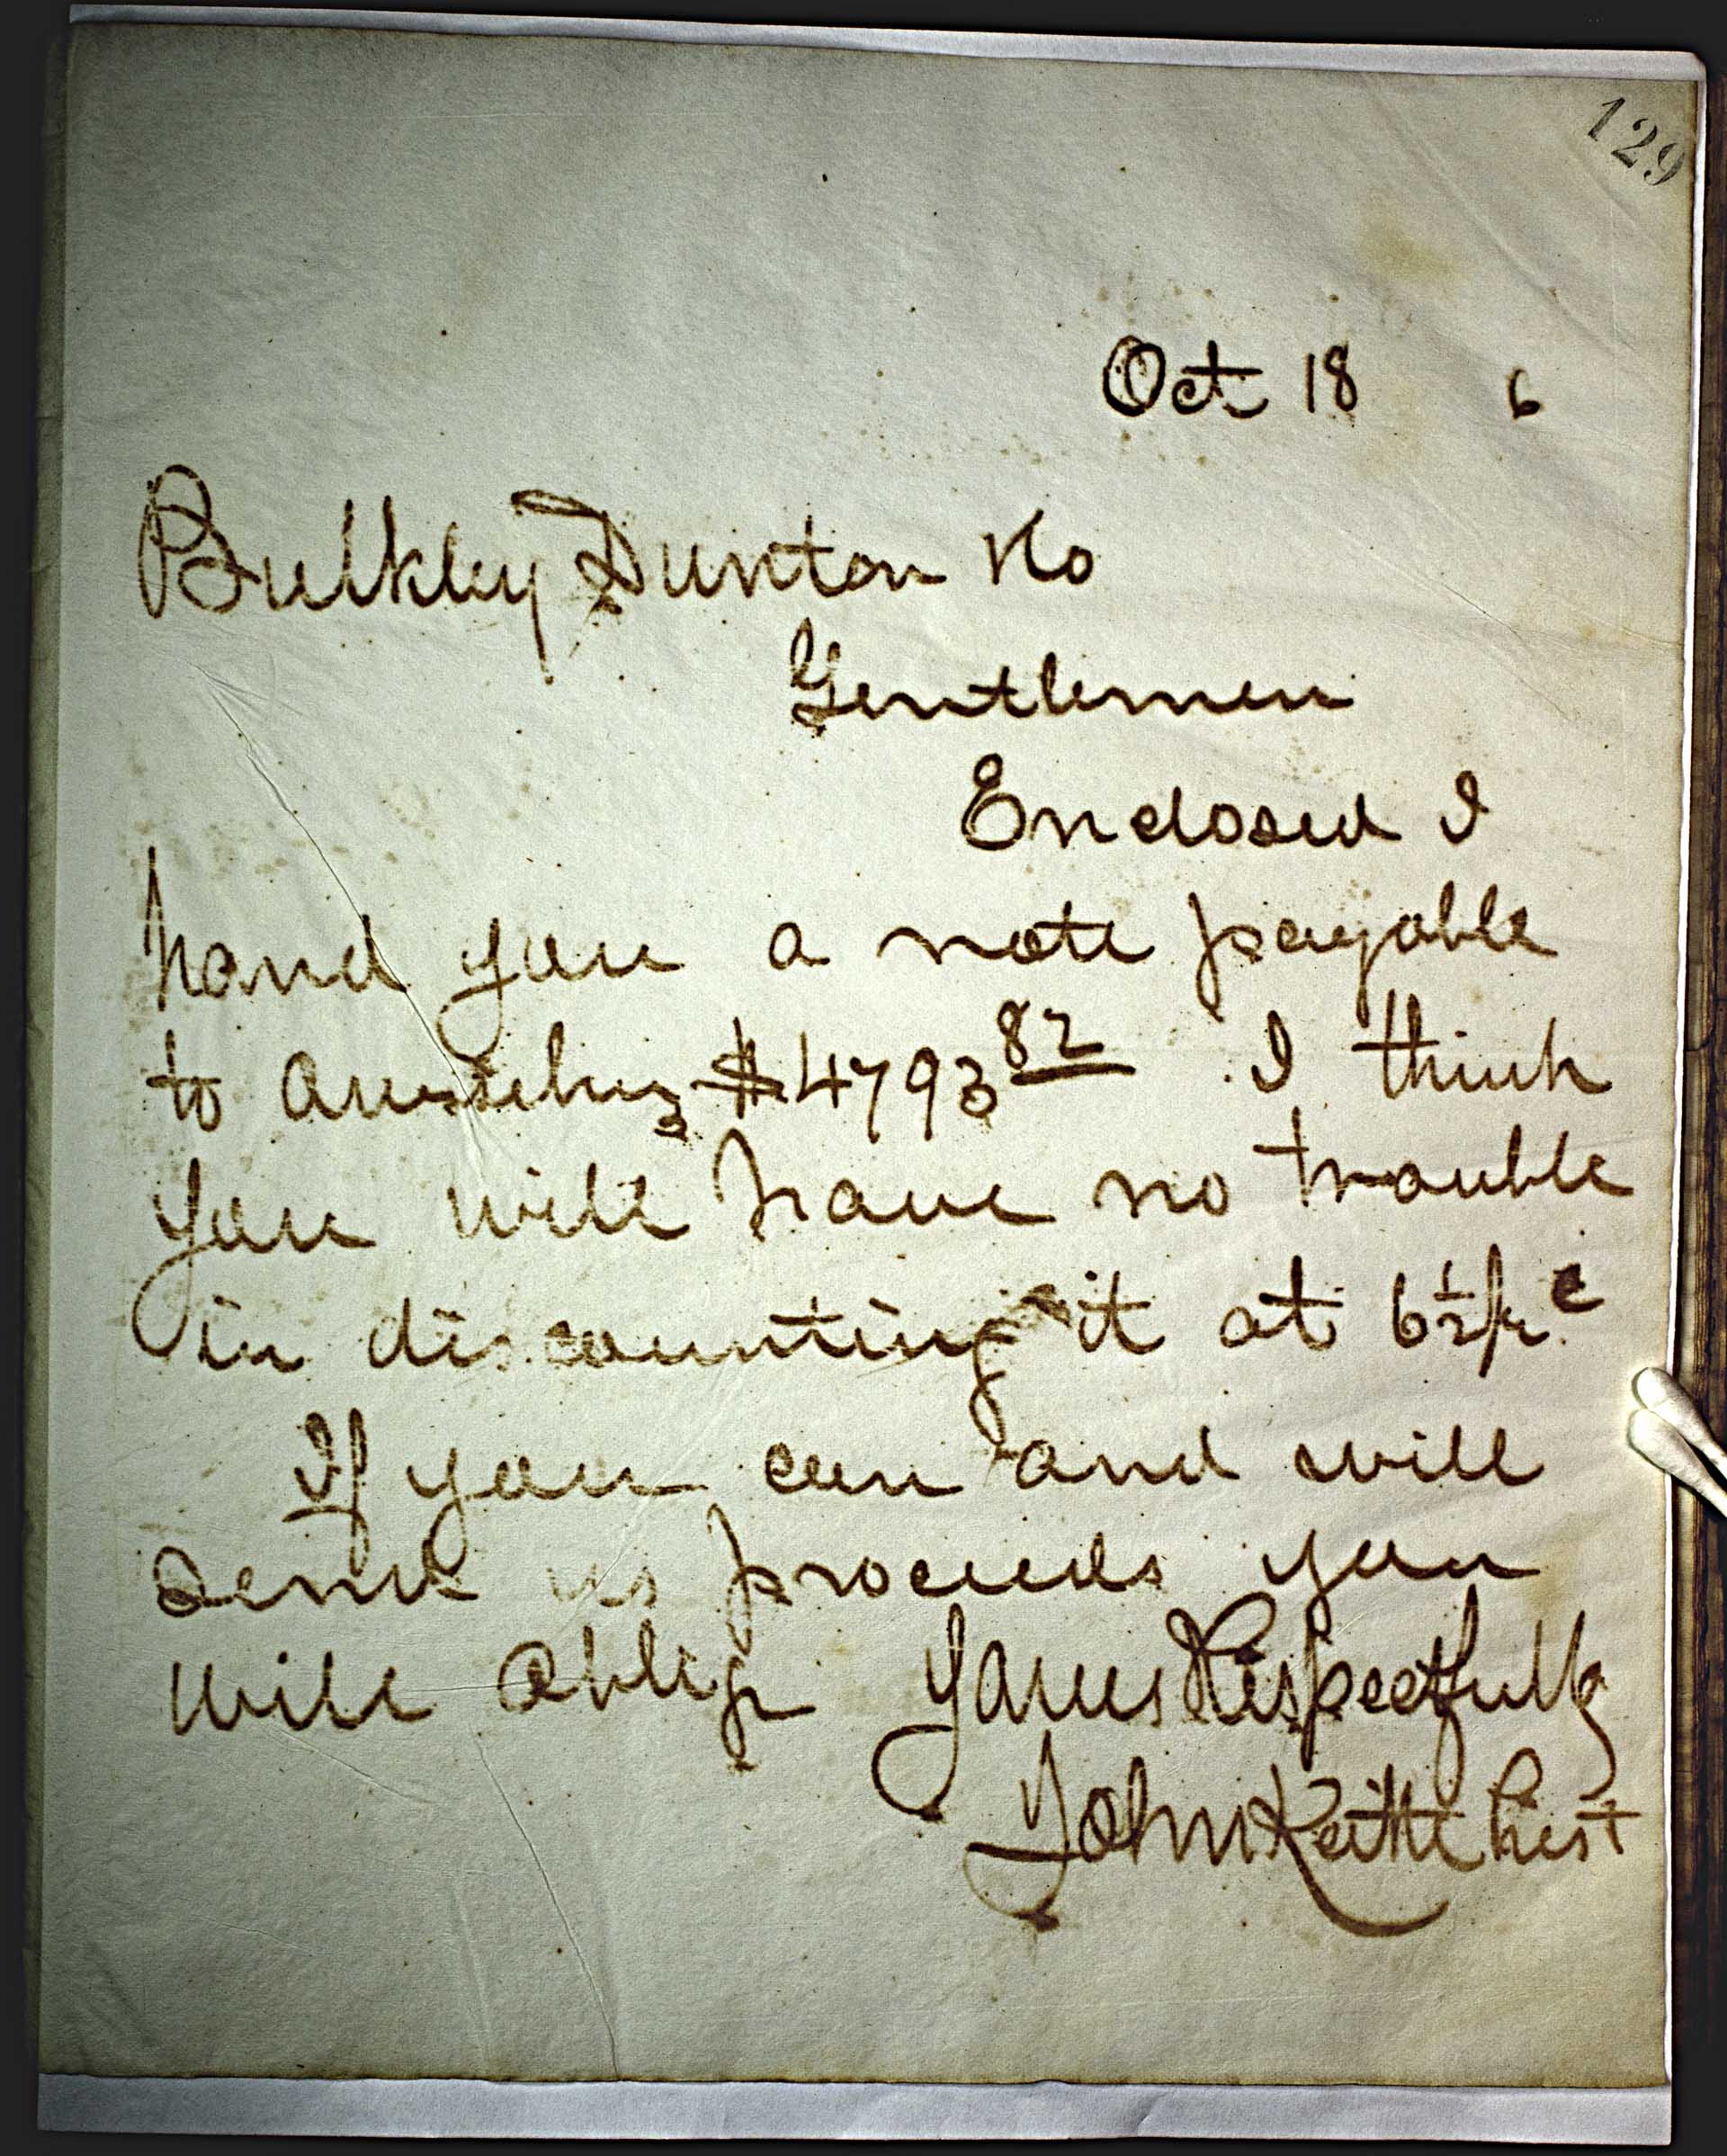 129
Oct 18 6
Bulkley Dunton & Co
Gentlemen
Enclosed I
hand you a note payable
to ourselves $4793 82 I think
you will have no trouble
in discounting it at 6½ pr c
If you can and will
send us proceeds you
will oblige Yours Respectfully
John Keith Prest